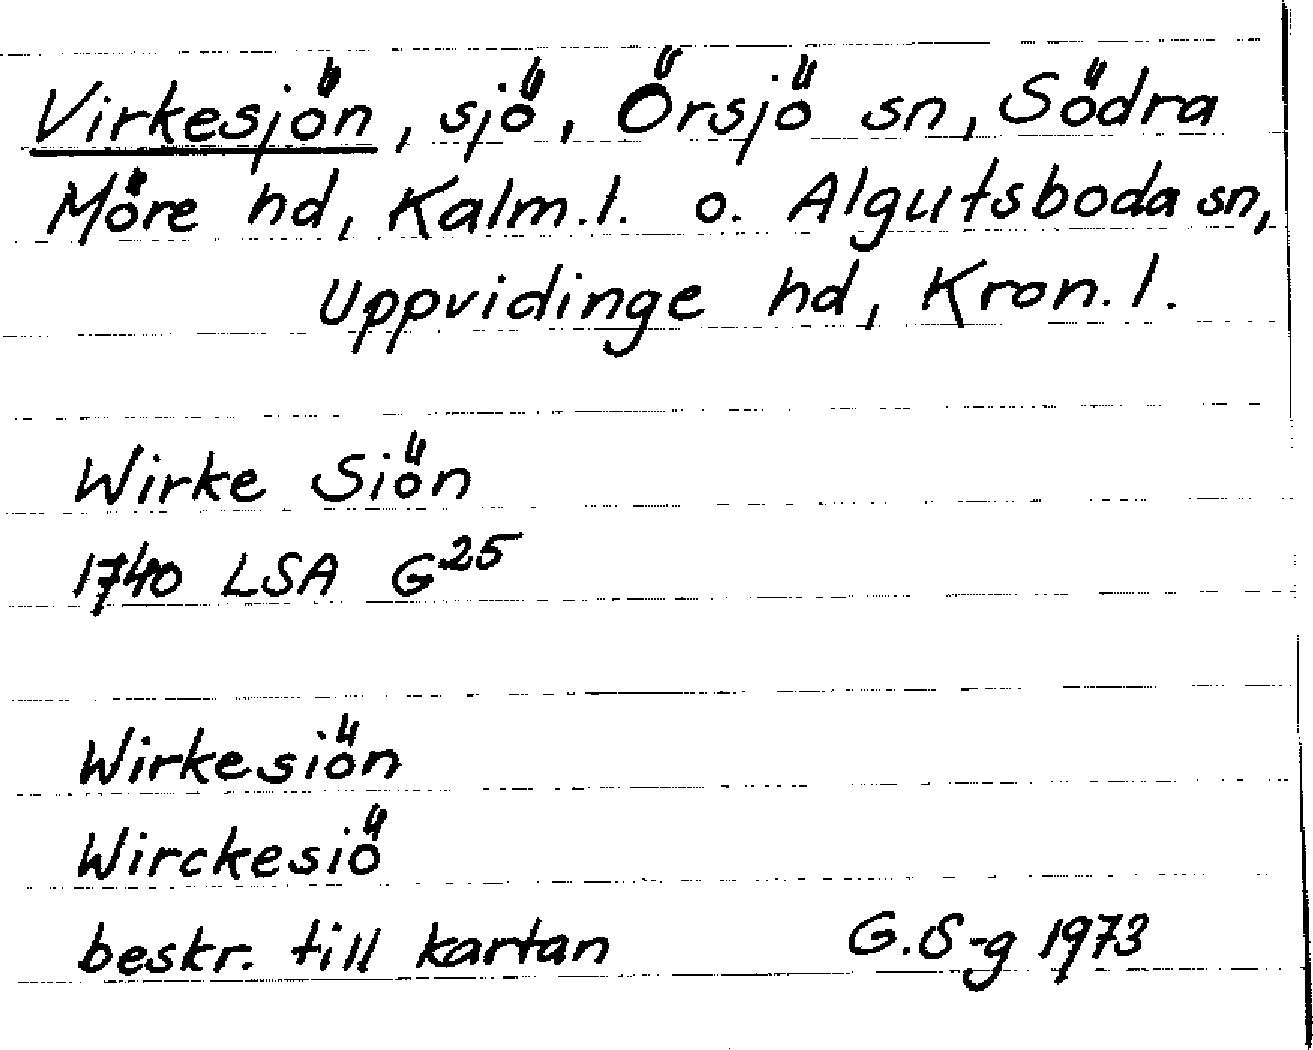 Virkesjön, sjö, Örsjö sn, Södra
Möre hd, Kalm.l. o. Algutsboda sn,
Uppvidinge hd, Kron.l.
Wirke Siön
1740 LSA G25
Wirkesiön
Wirckesiö
beskr. till kartan G.S-g 1973